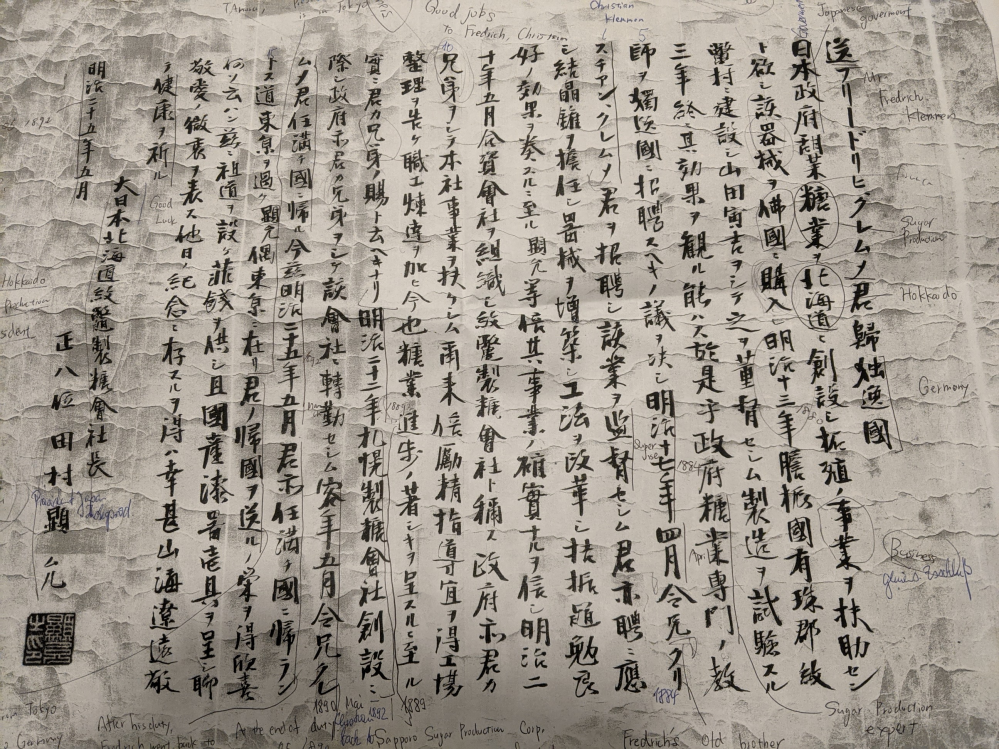 送フリードリヒ、クレムノ君歸独逸國
日本政府甜菜糖業ヲ北海道ニ創設シ拓殖ノ事業ヲ扶助セン
ト欲シ該器械ヲ佛國ニ購入シ明治十三年膽振國有珠郡紋
鼈村ニ建設シ山田寅吉ヲシテ之ヲ董督セシム製造ヲ試驗スル
三年終其効果ヲ観ル能ハス於是于政府糖業專門ノ教
師ヲ獨逸國ニ招聘スヘキノ議ヲ决シ明治十七年四月令兄クリ
スチアン、クレムノ君ヲ招聘シ該業ヲ监督セシム君亦聘ニ應
シ結晶罐ヲ擔任シ器械ヲ増築シ工法ヲ改革シ拮据勉良
好ノ効果ヲ奏スルニ至ル顕允等倍其事業ノ確實ナルヲ信シ明治二
十年五月合資會社ヲ組織シ紋鼈製糖會社ト稱ス政府亦君カ
兄弟ヲシテ本社事業ヲ扶ケシム爾来倍勵精指導宜ヲ得工場
整理ヲ告ケ職工煉達ヲ加ヒ今也糖業進歩ノ著シキヲ呈スルニ至ル
實ニ君カ兄弟ノ賜ト云ヘキナリ明治二十二年札幌製糖會社創設ニ
際シ政府亦君カ兄弟ヲシテ該會社轉勤セシム客年五月令兄クレ
ムノ君任満テ國ニ帰ル今茲明治二十五年五月君亦任満テ國ニ帰ラン
トス道東京ヲ過ク顕允偶東京ニ在リ君ノ帰國ヲ送ルノ榮ヲ得欣喜
何ソ云ハン茲ニ祖道ヲ設ケ菲餞ヲ供シ且國産漆器壱具ヲ呈シ聊
敬愛ノ微衷ヲ表ス他日ノ紀念ニ存スルヲ得ハ幸甚山海遼遠敬
テ健康ヲ祈ル
明治二十五年五月
大日本北海道紋鼈製糖會社長
正八位田村顕允
Good jobs
to Fredrich, Christian
Christian
Klemmen
Japanese goverment
Mr.
Fredrich
Klemmen
Sugar
Production
Hokkaido
Germany
Business
Sugar Production
expert
Good
Luck
Hokkaido
Production
1892
1884
April
1889
After his duty,
Fredrich went back to
At the end of duty
1890 Mai
1892
back to Sapporo Sugar Production Corp.
1889
Fredrichs old brother
1884
Tokyo
Germany